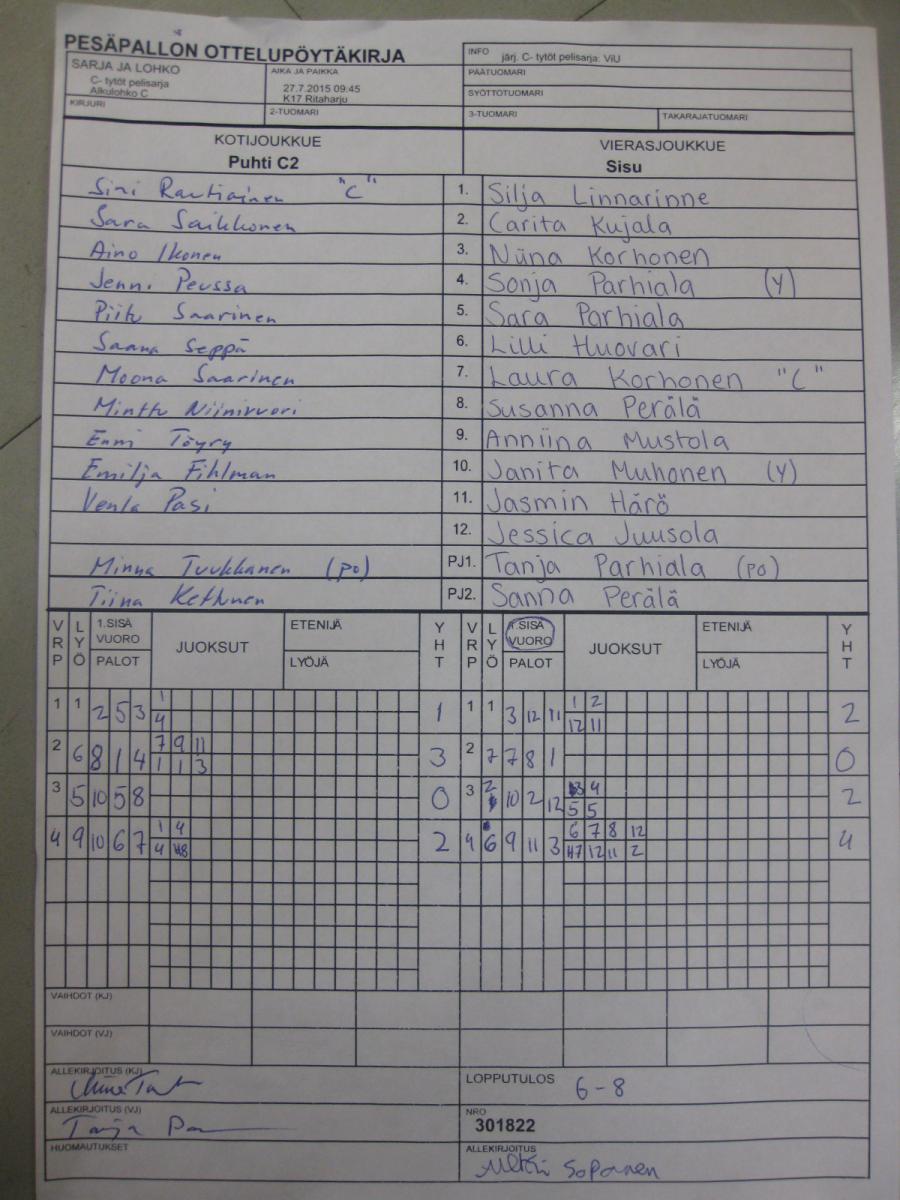 PESÄPALLON OTTELUPÖYTÄKIRJA
SARJA JA LOHKO
C- tytöt pelisarja
Alkulohko C
KIRJURI
AIKA JA PAIKKA
27.7.2015 09:45
K17 Ritaharju
2-TUOMARI
INFO järj. C- tytöt pelisarja: ViU
PÄÄTUOMARI
SYÖTTÖTUOMARI
3-TUOMARI TAKARAJATUOMARI
KOTIJOUKKUE
Puhti C2
VIERASJOUKKUE
Sisu
Sini Rautiainen "C" 1. Silja Linnarinne
Sara Saikkonen 2. Carita Kujala
Aino Ikonen 3. Niina Korhonen
Jenni Peussa 4. Sonja Parhiala (Y)
Piitu Saarinen 5. Sara Parhiala
Saana Seppä 6. Lilli Huovari
Moona Saarinen 7. Laura Korhonen "C"
Minttu Niinivuori 8. Susanna Perälä
Enni Töyry 9. Anniina Mustola
Emilja Fihlman 10. Janita Muhonen (Y)
Venla Pasi 11. Jasmin Härö
12. Jessica Juusola
Minna Tuukkanen (po) PJ1. Tanja Parhiala (po)
Tiina Kettunen PJ2. Sanna Perälä
VRP LYÖ 1.SISÄ VUORO PALOT JUOKSUT ETENIJÄ LYÖJÄ YHT VRP LYÖ 1.SISÄ VUORO PALOT JUOKSUT ETENIJÄ LYÖJÄ YHT
1 2
1 1 2 5 3 1 1 1 3 12 11 2
4 12 11
7 9 11
2 6 8 1 4 3 2 7 7 8 1 0
1 1 3
3 4
3 5 10 5 8 0 3 2 10 2 12 2
5 5
1 4 6 7 8 12
4 9 10 6 7 2 4 6 9 11 3 4
4 8 7 12 11 2
VAIHDOT (KJ)
VAIHDOT (VJ)
ALLEKIRJOITUS (KJ)
LOPPUTULOS 6-8
ALLEKIRJOITUS (VJ)
Tanja
NRO
301822
HUOMAUTUKSET
ALLEKIRJOITUS
Soponen